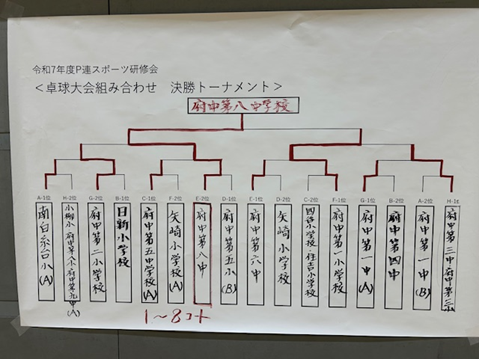 令和7年度P連スポーツ研修会
＜卓球大会組み合わせ　決勝トーナメント＞
府中第八中学校
A-1位
H-2位
G-2位
B-1位
C-1位
F-2位
D-1位
E-1位
D-2位
C-2位
F-1位
G-1位
B-2位
A-2位
H-1位
南白糸台小(A)
府中第二小学校
日新小学校
府中第五中学校(A)
矢崎小学校(A)
府中第八中
府中第五小(B)
府中第六中
矢崎小学校
四谷小学校・住吉小学校
府中第一小学校
府中第一中(A)
府中第四中
府中第一中(B)
1〜8コート